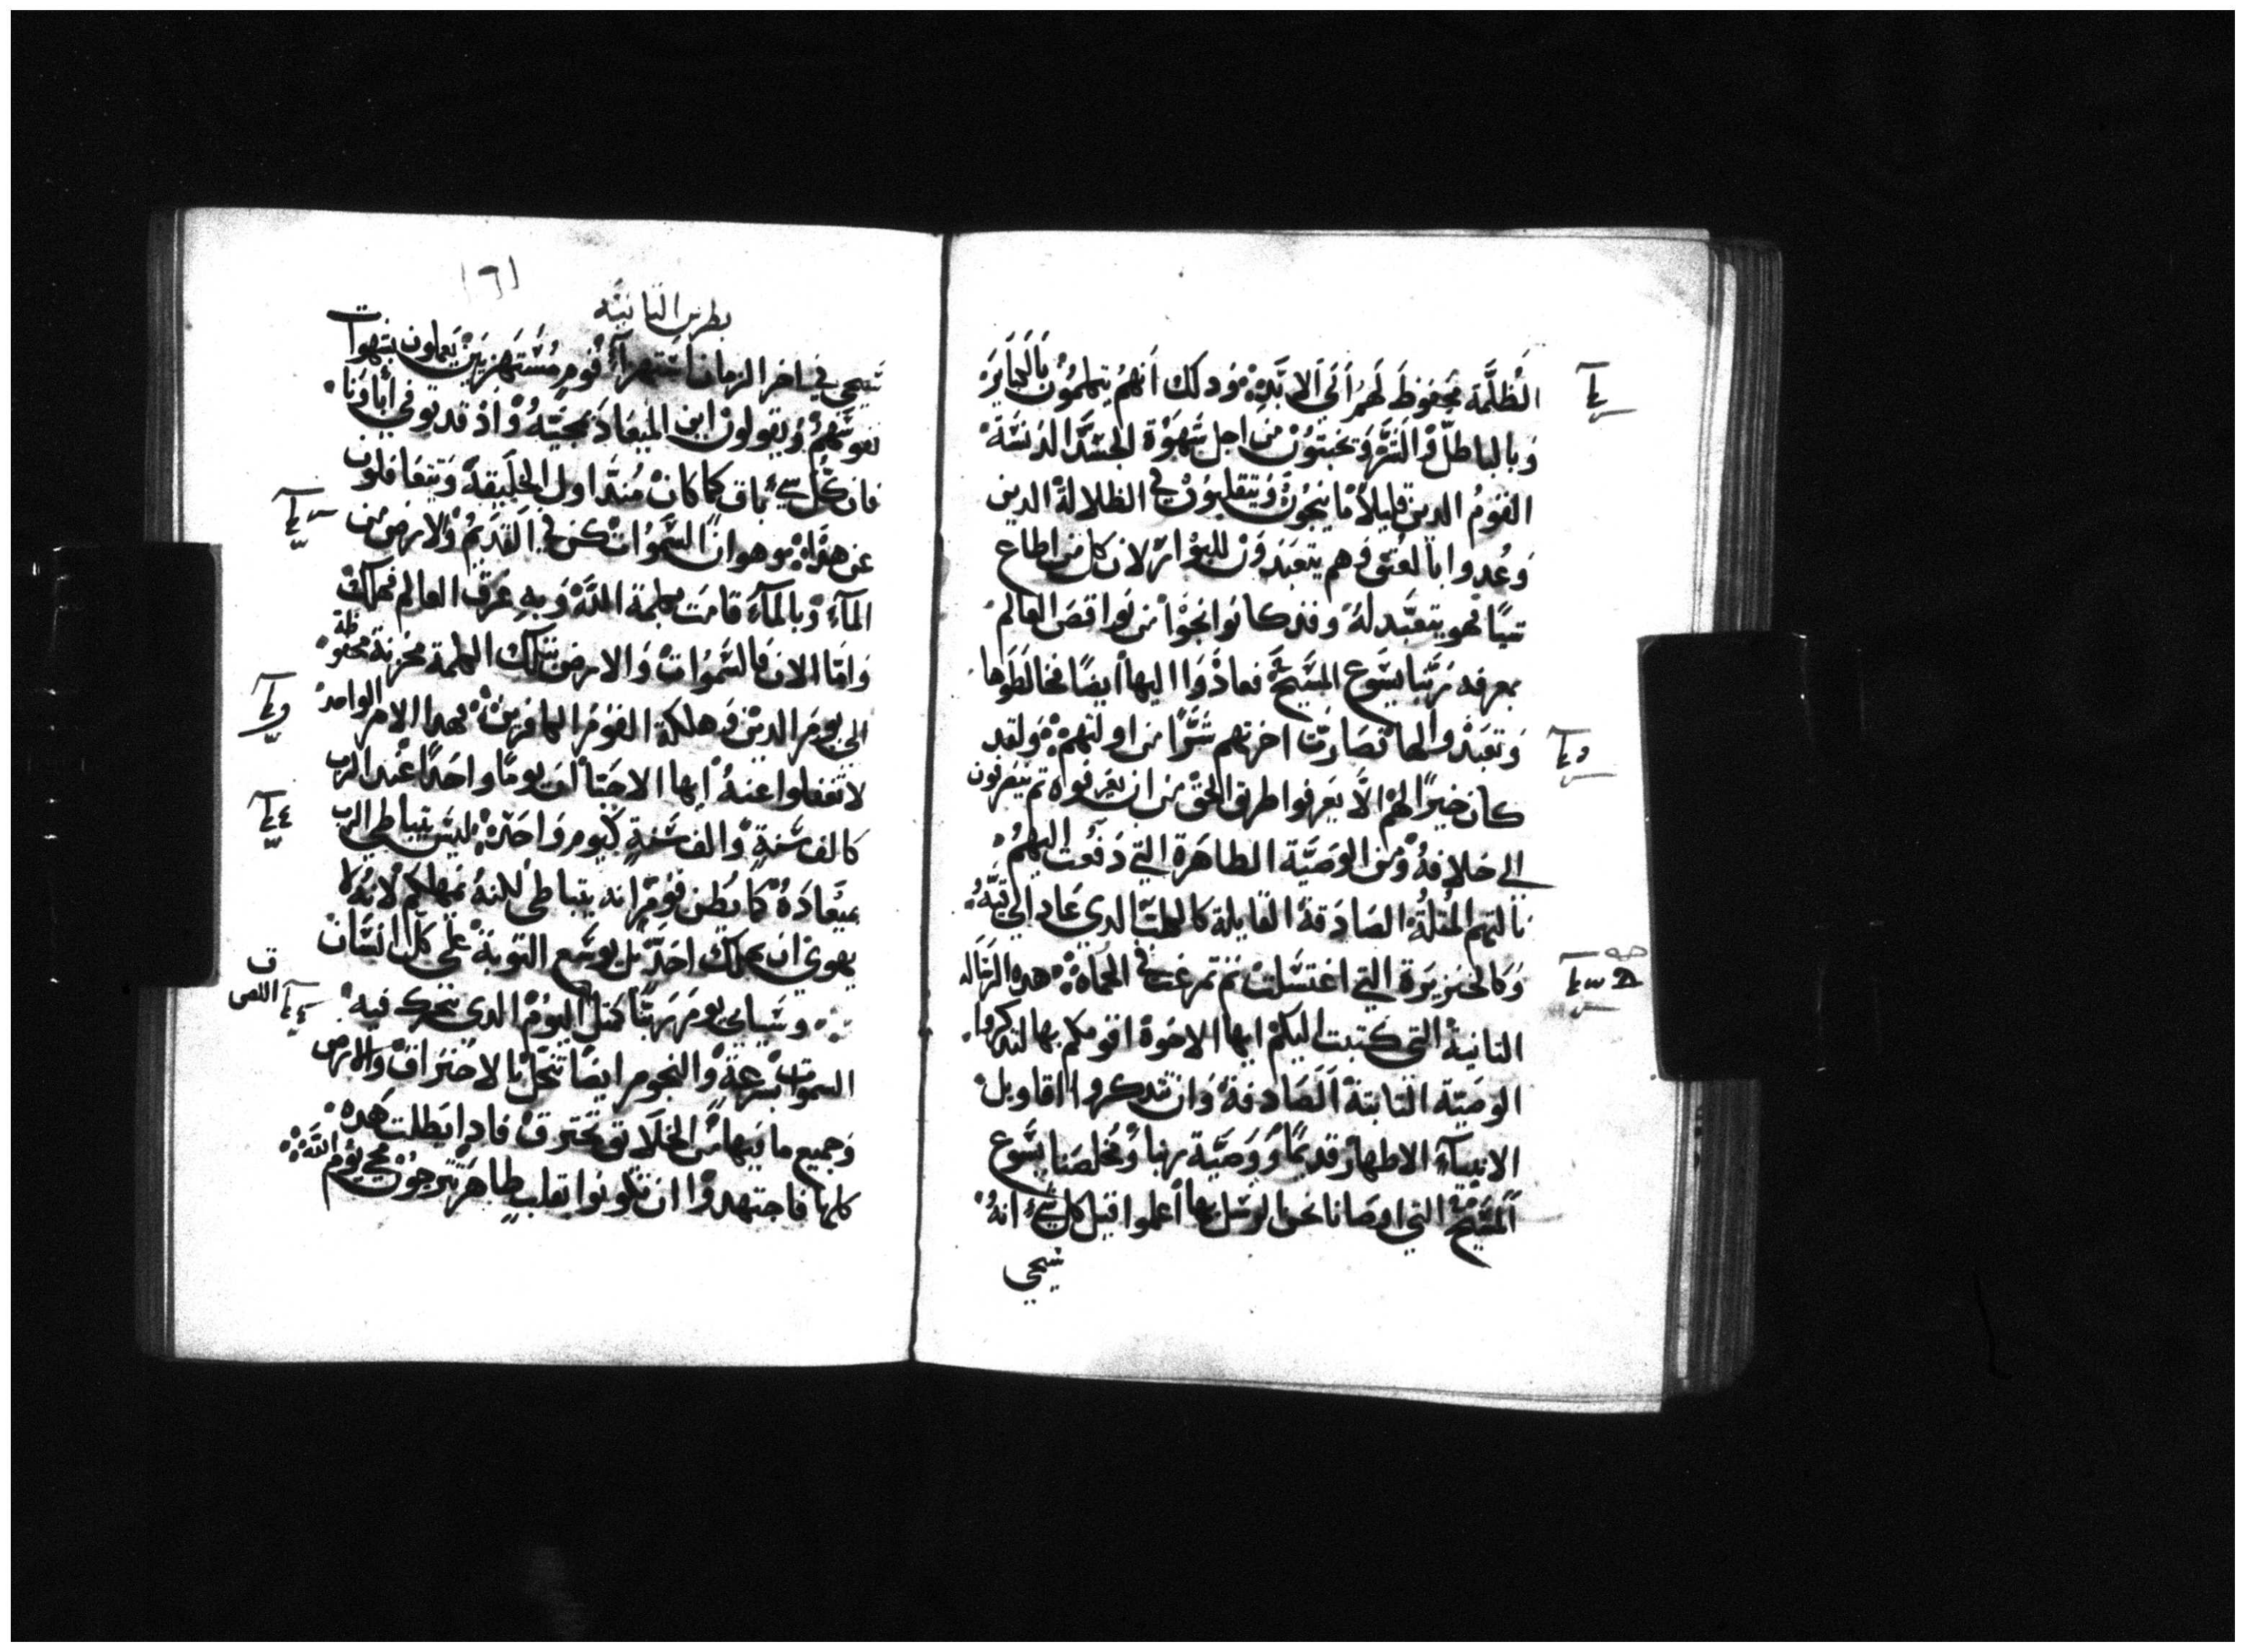 الظلمة محفوظ لهم الي الابد وذلك انهم يتكلمون بالكباير
وبالباطل والشر ويخبتون من اجل شهوة الجسد الدنسة
القوم الدين قليلا ما ينجون ويتقلبون في الظلالة الدين
وعدوا بالعتق وهم يتعبدون للبوار لان كل من اطاع
شيا فهو يتعبد له وقد كانوا نجوا من نواقص العالم
بمعرفة ربنا يسوع المسيح فعادوا اليها ايضا فخالطوها
وتعبدوا لها فصارت اخرتهم شرا من اولتهم ولقد
كان خيرا لهم الا يعرفوا طريق الحق من ان يعرفوه ثم ينصرفون
الي خلافه ومن الوصية الطاهرة التي دفعت اليهم
نالتهم المتلة الصادقة القايلة كالكلب الدي عاد الي قيه
وكالخنزيرة التي اغتسلت ثم تمرغت في الحماه هده الرساله
التانية التي كتبت اليكم ايها الاخوة اقومكم بها لتدكروا
الوصية التابتة الصادقة وان تتدكروا اقاويل
الانبياء الاطهار قديما ووصية ربنا ومخلصنا يسوع
المسيح التي اوصانا نحن الرسل بها اعلموا قبل كل شي انه
سيجي
١٦١
بطرس التانيه
سيجي في اخر الزمان استهزآء قوم مستهزيين يعملون بشهوات
نفوسهم ويقولون اين الميعاد بمجيته واد قد توفي اباونا
فان كل شي باق كما كان مند اول الخليقة ويتغافلون
عن هدا وهو ان السموات كن في القديم والارض من
المآء وبالمآء قامت بكلمة الله وبه غرق العالم فهلك
واما الان فالسموات والارض بتلك الكلمة مخزنة محفوظة
الي يوم الدين وهلكة القوم الكافرين فهدا الامر الواحد
لا تغفلوا عنه ايها الاحبا ان يوما واحدا عند الرب
كالف سنة والف سنة كيوم واحد ليس يتباطي الرب
بميعاده كما يظن قوم انه يتباطي لكنه يمهلكم لانه لا
يهوي ان يهلك احد بل يوسع التوبة علي كل انسان
وسياتي يوم ربنا كمتل اليوم الدي يتحرك فيه
السموات بسرعة والنجوم ايضا تنحل بالاحتراق والارض
وجميع ما فيها من الخلايق تحترق فادا بطلت هده
كلها فاجتهدوا ان تكونوا بقلب طاهر ترجون مجي يوم الله
اللص